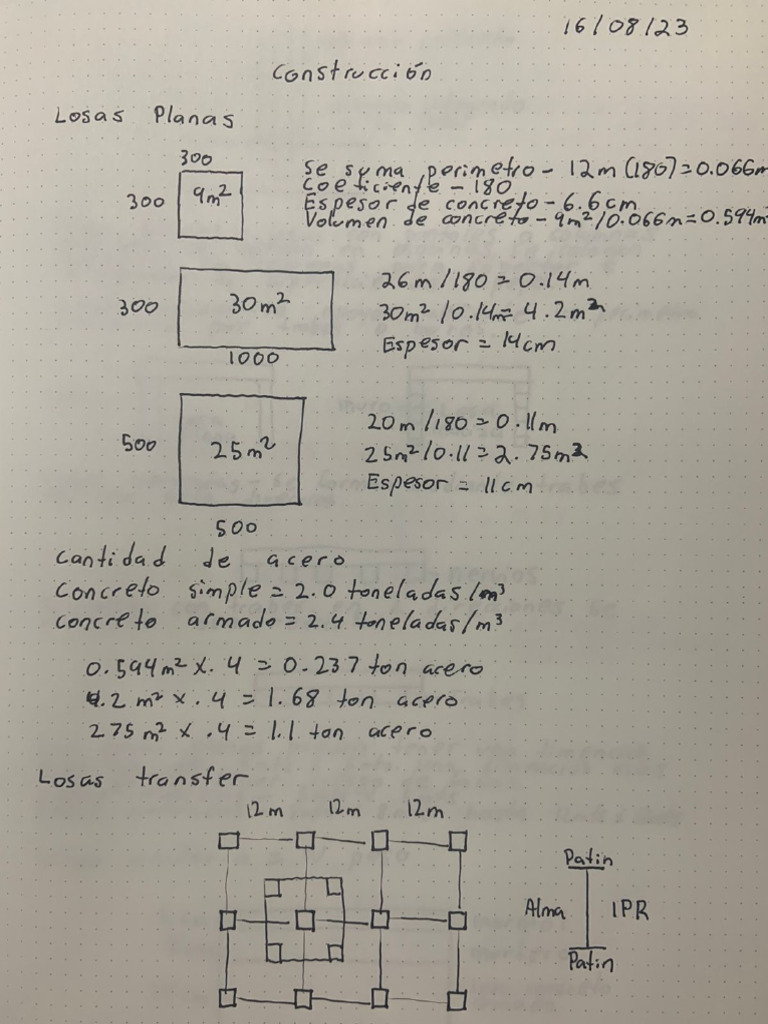 16/08/23
Construcción
Losas Planas
300
300
9m²
Se suma perimetro - 12m (180) = 0.066m
Coeficiente - 180
Espesor de concreto - 6.6cm
Volumen de concreto - 9m²/0.066m = 0.594m
300
30m²
1000
26m/180 = 0.14m
30m²/0.14m = 4.2m³
Espesor = 14cm
500
25m²
500
20m/180 = 0.11m
25m²/0.11 = 2.75m³
Espesor = 11cm
Cantidad de acero
Concreto simple = 2.0 toneladas/m³
concreto armado = 2.4 toneladas/m³
0.594m² x .4 = 0.237 ton acero
4.2 m² x .4 = 1.68 ton acero
275 m² x .4 = 1.1 ton acero
Losas transfer
12m 12m 12m
Patin
Alma IPR
Patin